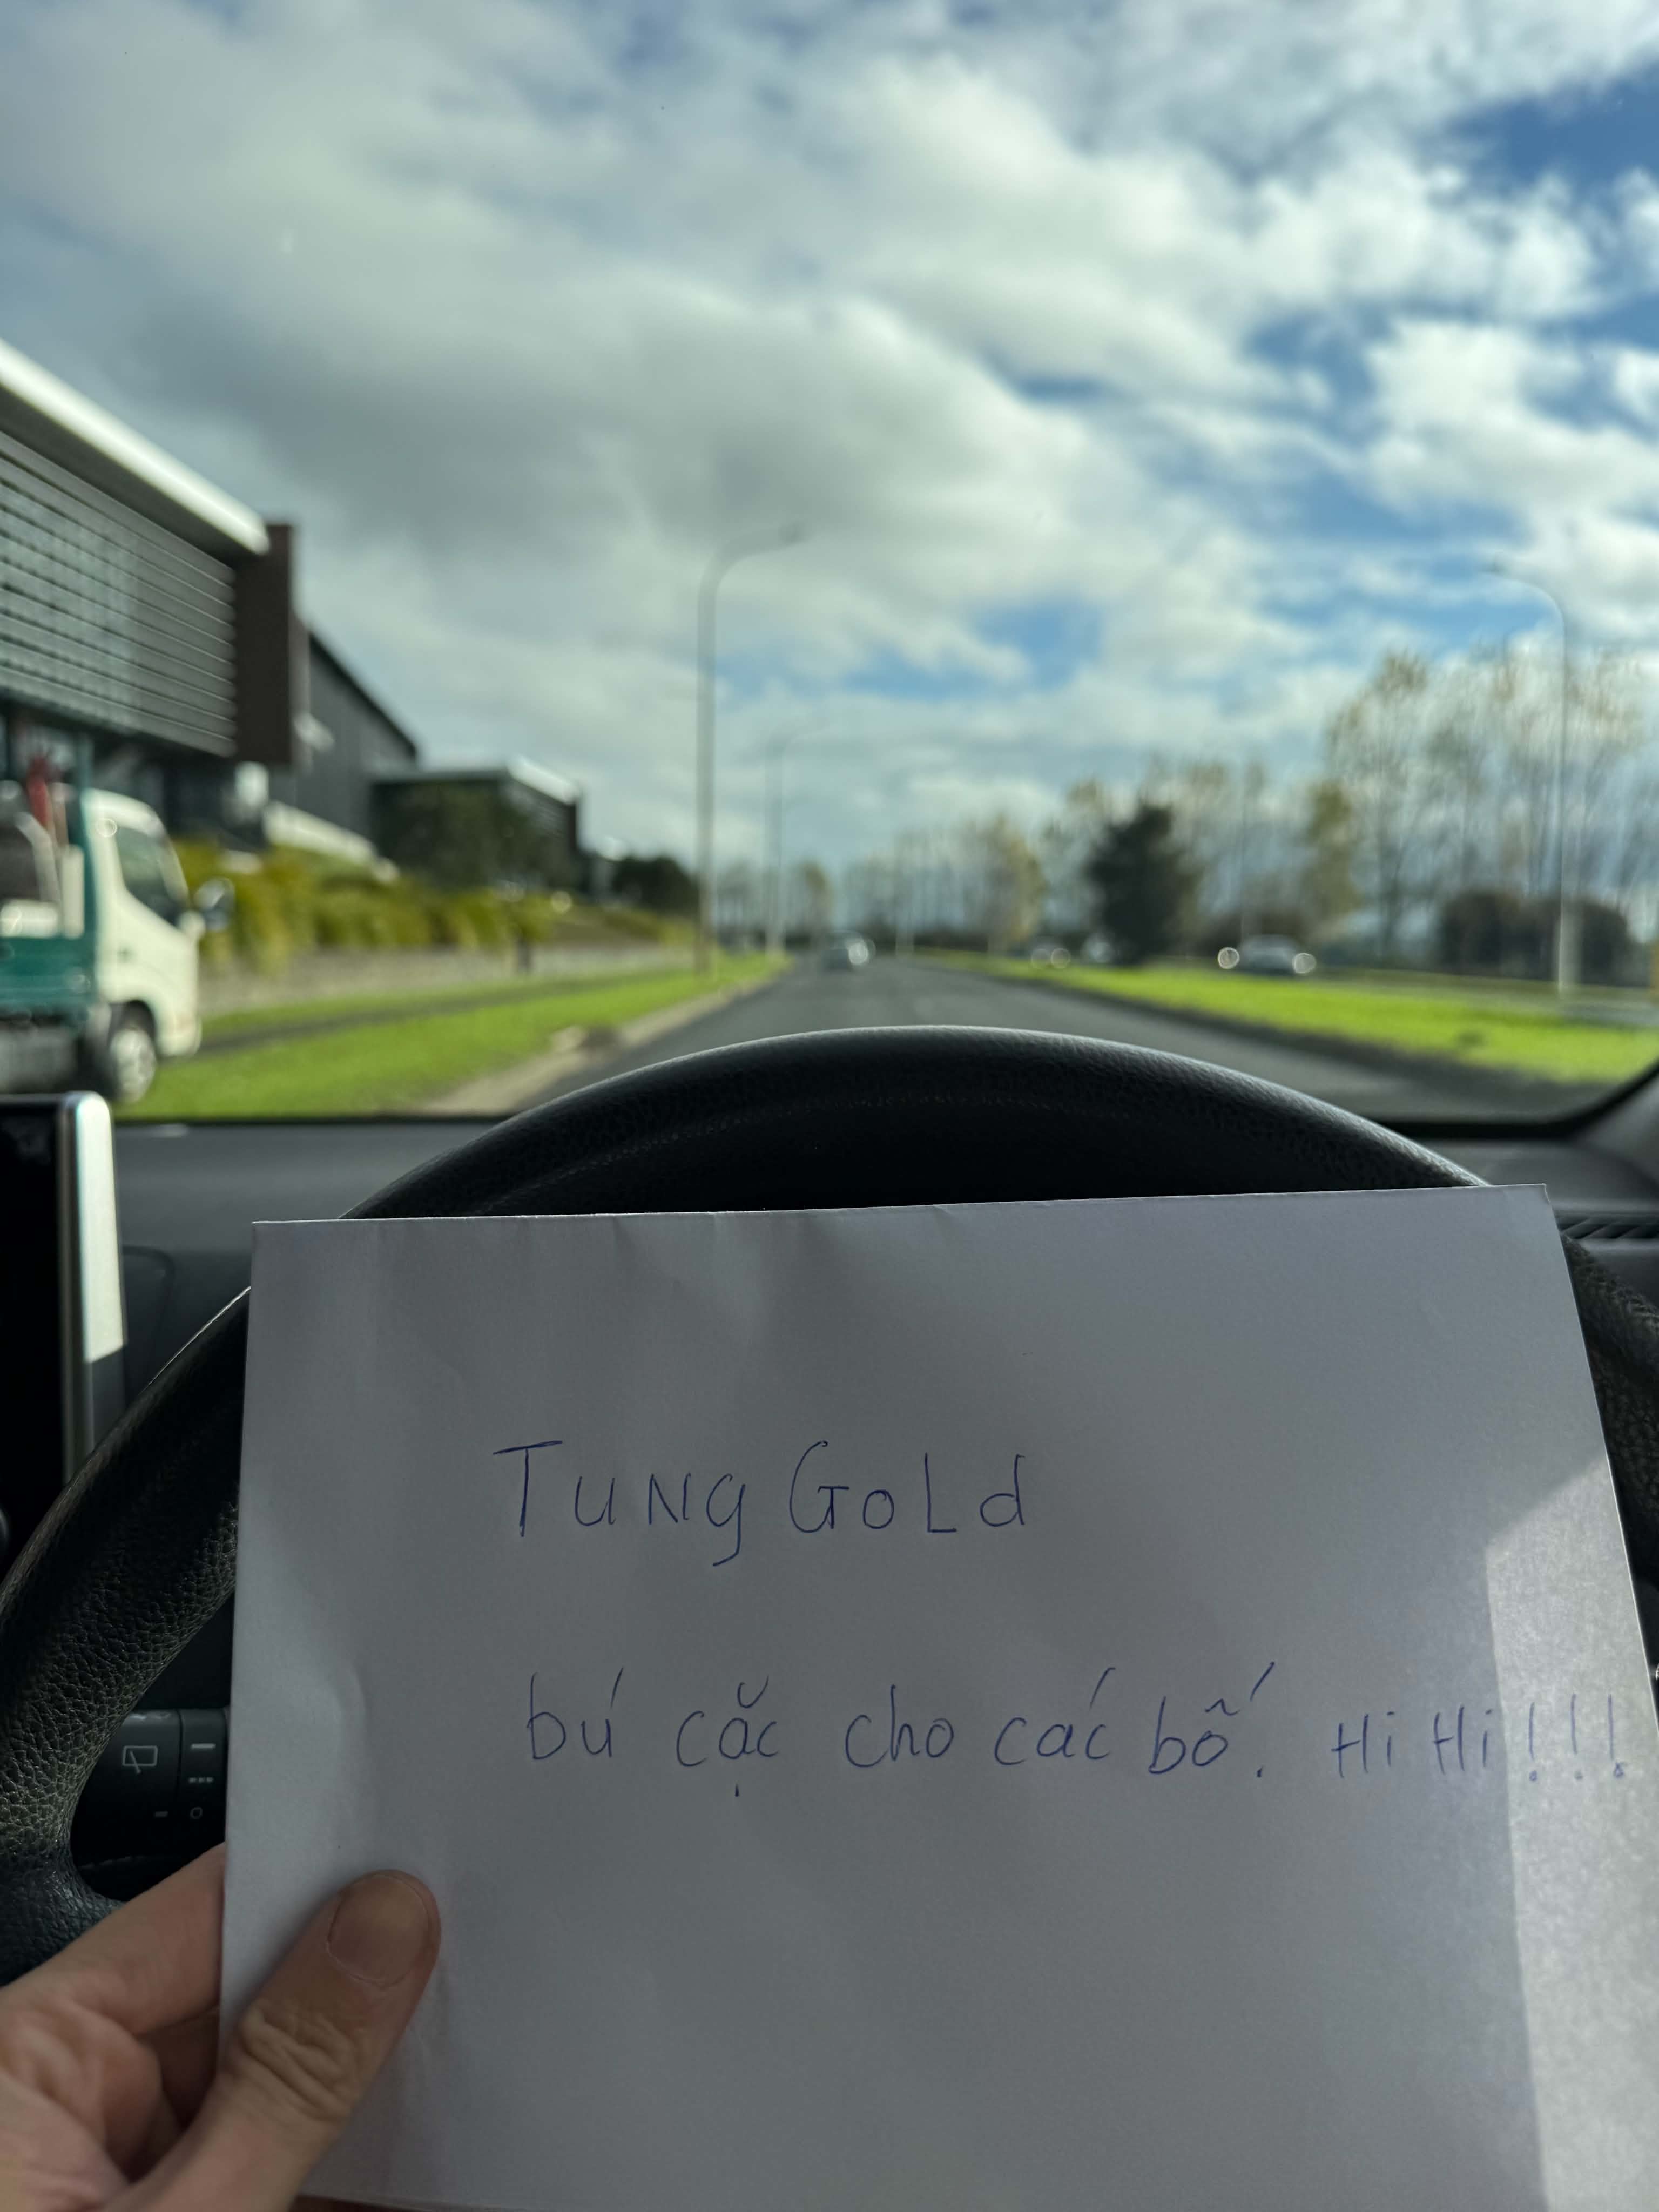 Tung Gold
bú cặc cho các bố. Hi Hi!!!